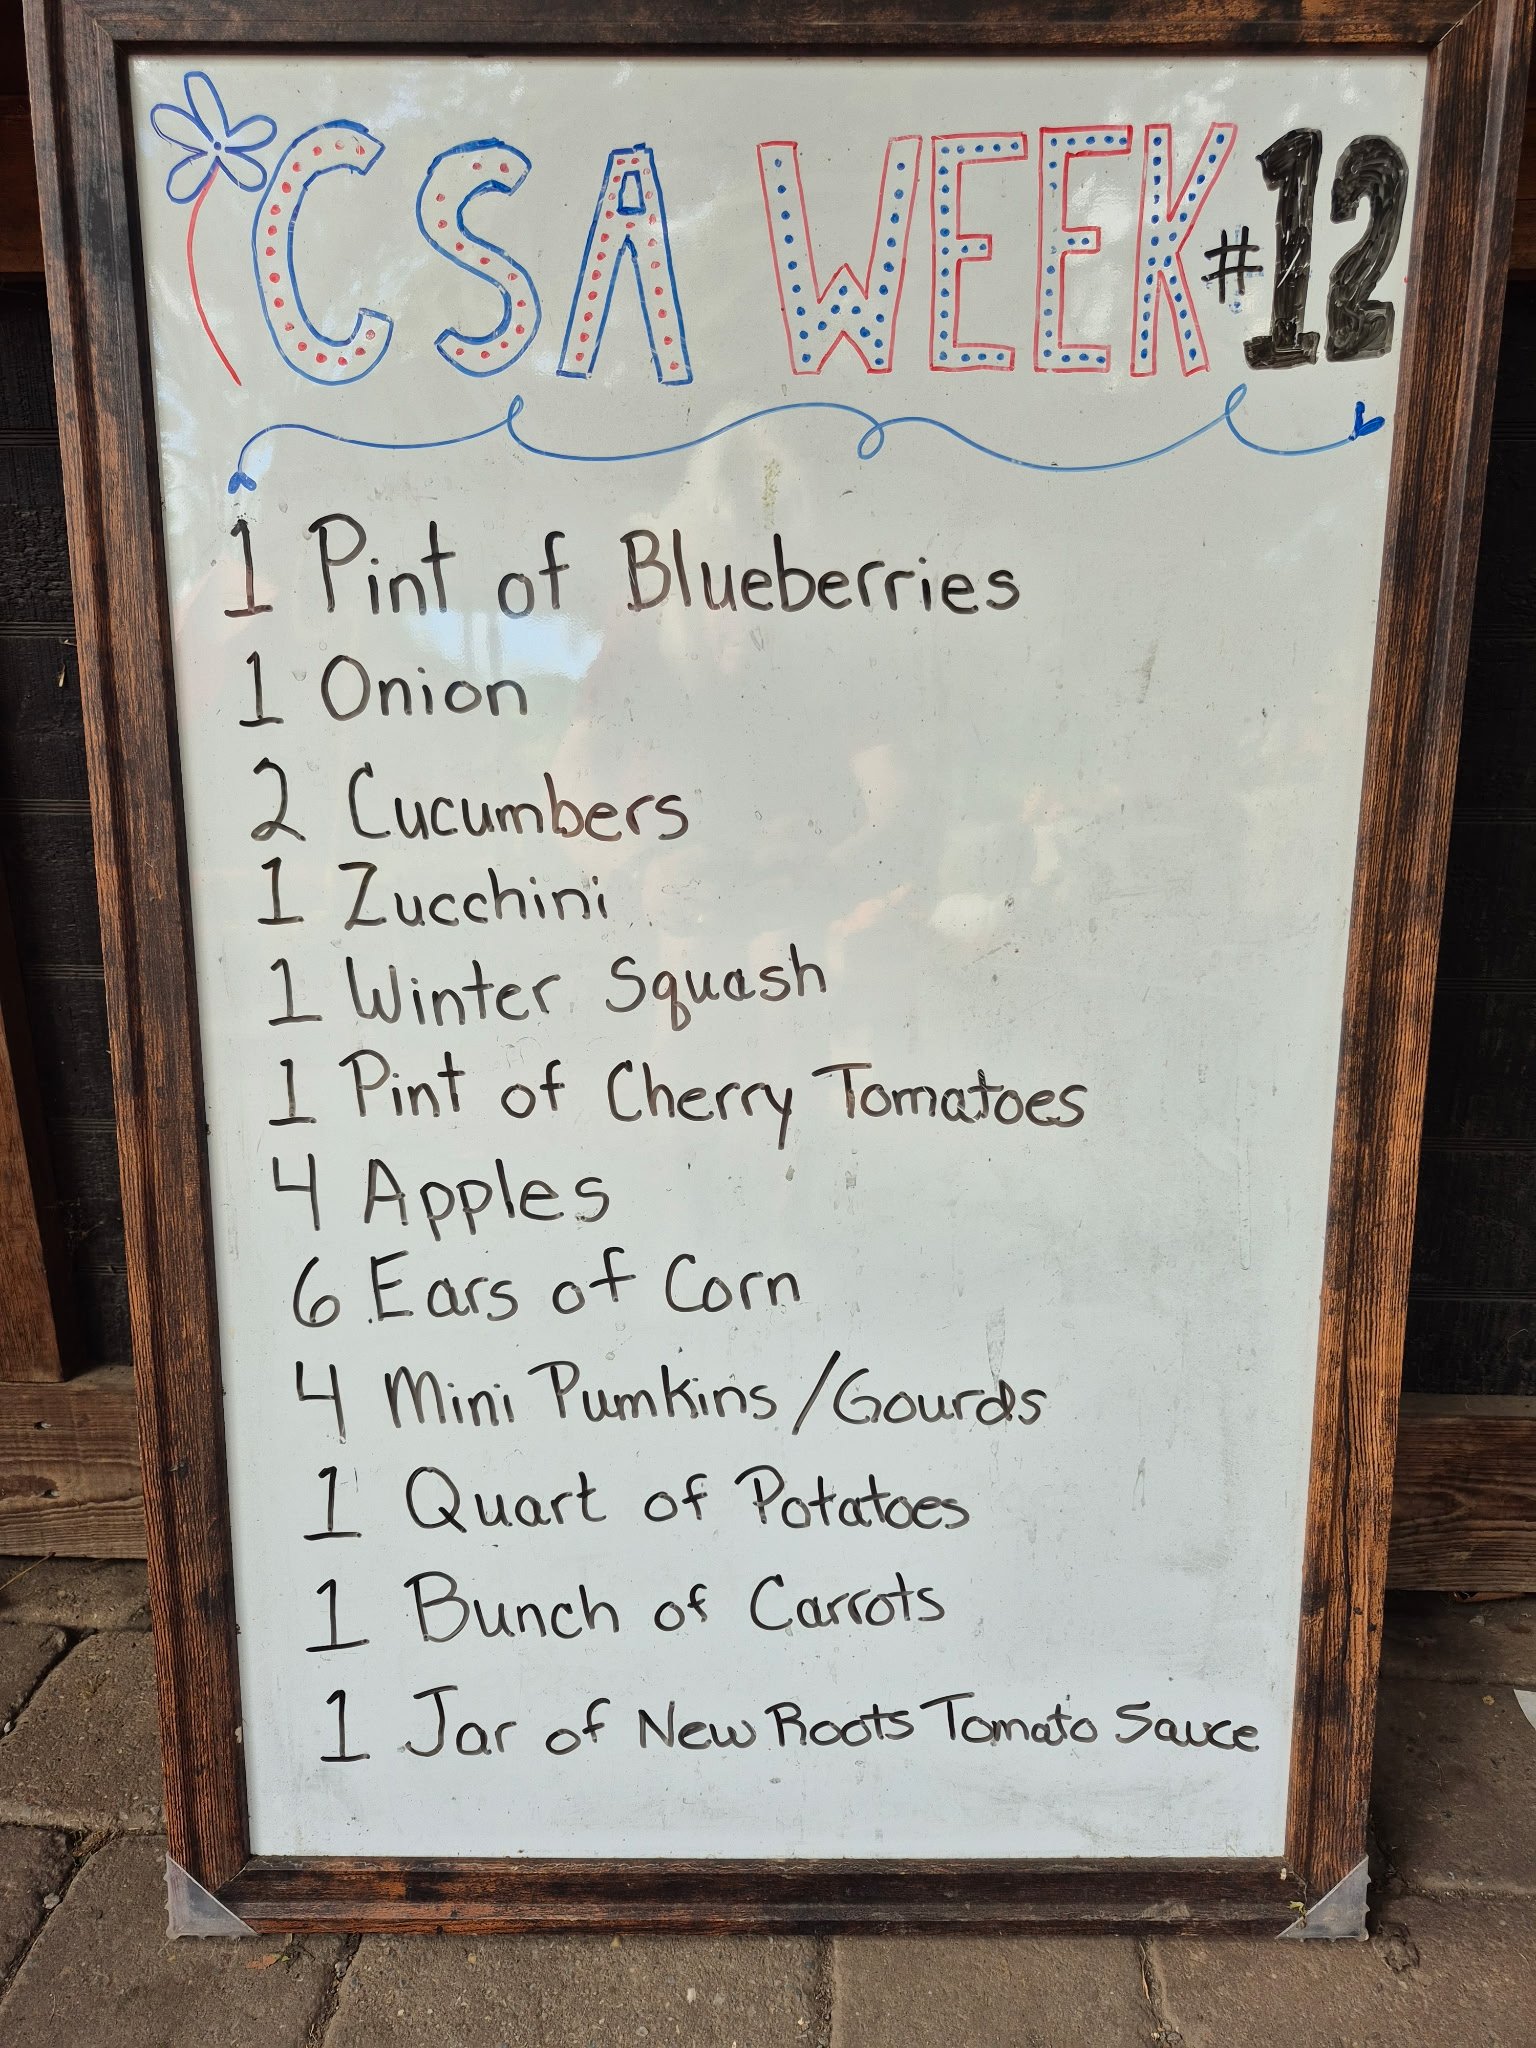 CSA WEEK #12
1 Pint of Blueberries
1 Onion
2 Cucumbers
1 Zucchini
1 Winter Squash
1 Pint of Cherry Tomatoes
4 Apples
6 Ears of Corn
4 Mini Pumkins/Gourds
1 Quart of Potatoes
1 Bunch of Carrots
1 Jar of New Roots Tomato Sauce